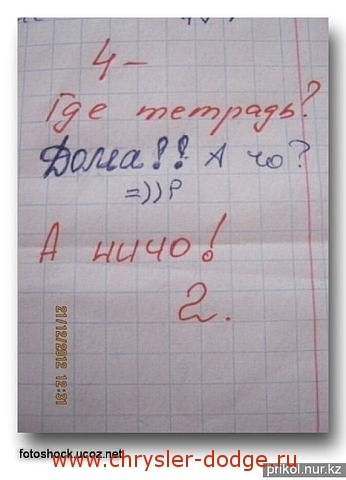 4-
Где тетрадь?
Дома!! А чо?
=))P
А ничо!
2.
21/12/2012 12:31
fotoshock.ucoz.net
www.chrysler-dodge.ru
prikol.nur.kz